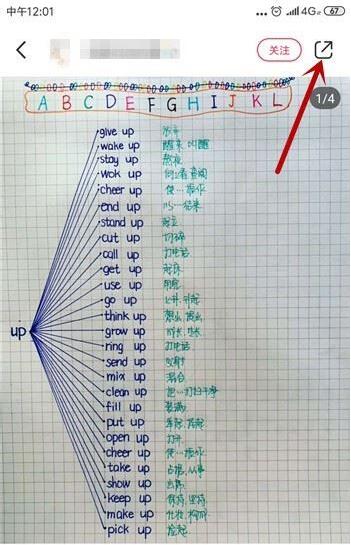 中午12:01
4G
67
关注
A B C D E F G H I J K L
1/4
give up 放弃
wake up 醒来,叫醒
stay up 熬夜
wok up
cheer up 使…振作
end up 以…结束
stand up 起立
cut up 切碎
call up 打电话
get up 起床
use up 用完
go up 上升,升起
think up 想出
grow up 成长
ring up 打电话
send up 发射
mix up 混合
clean up 把…打扫干净
fill up 装满
put up
open up 打开
cheer up 使…振作
take up 占据,从事
show up 出席
keep up 保持,坚持
make up 化妆,构成
pick up 捡起
up